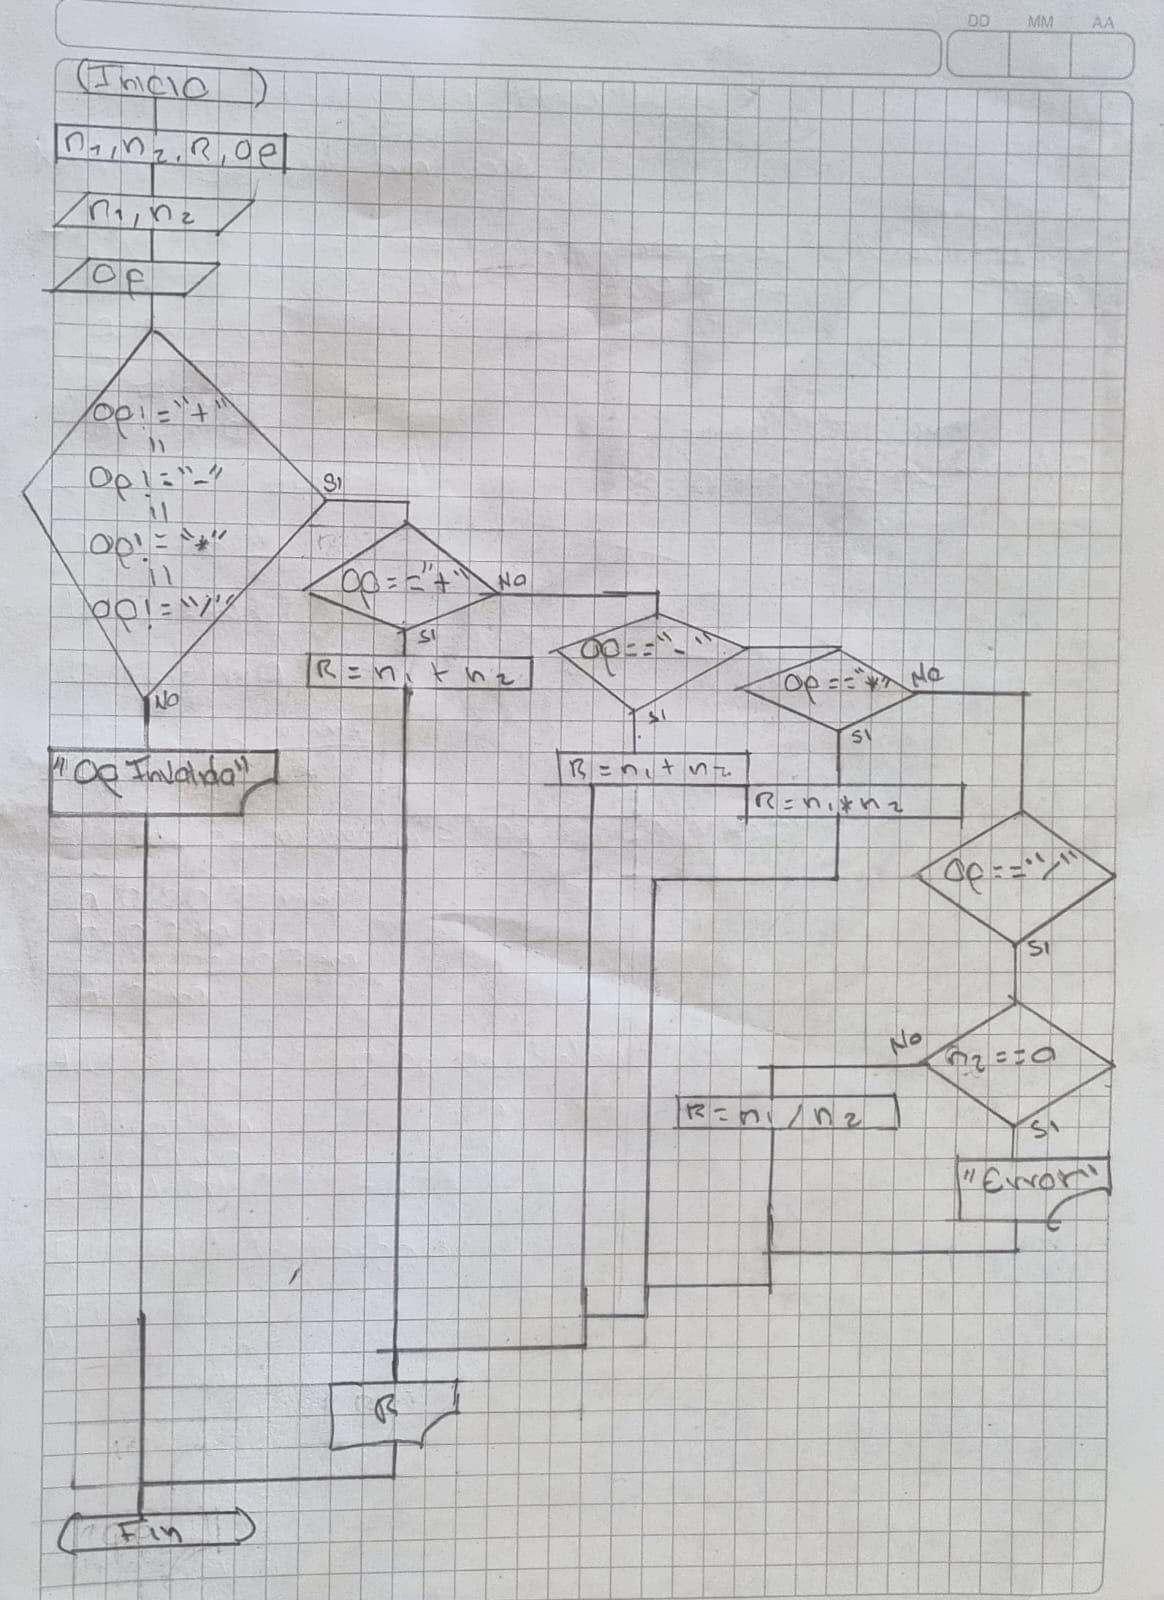 DD MM AA
(Inicio)
n1, n2, R, Op
n1, n2
Op
Op != "+"
||
Op != "-"
||
Op! = "*"
||
Op! = "/"
SI
NO
"Op Invalida"
Op == "+"
NO
SI
R = n1 + n2
Op == "-"
SI
R = n1 + n2
Op == "*"
NO
SI
R = n1 * n2
Op == "/"
SI
n2 == 0
No
SI
R = n1 / n2
"Error"
R
Fin